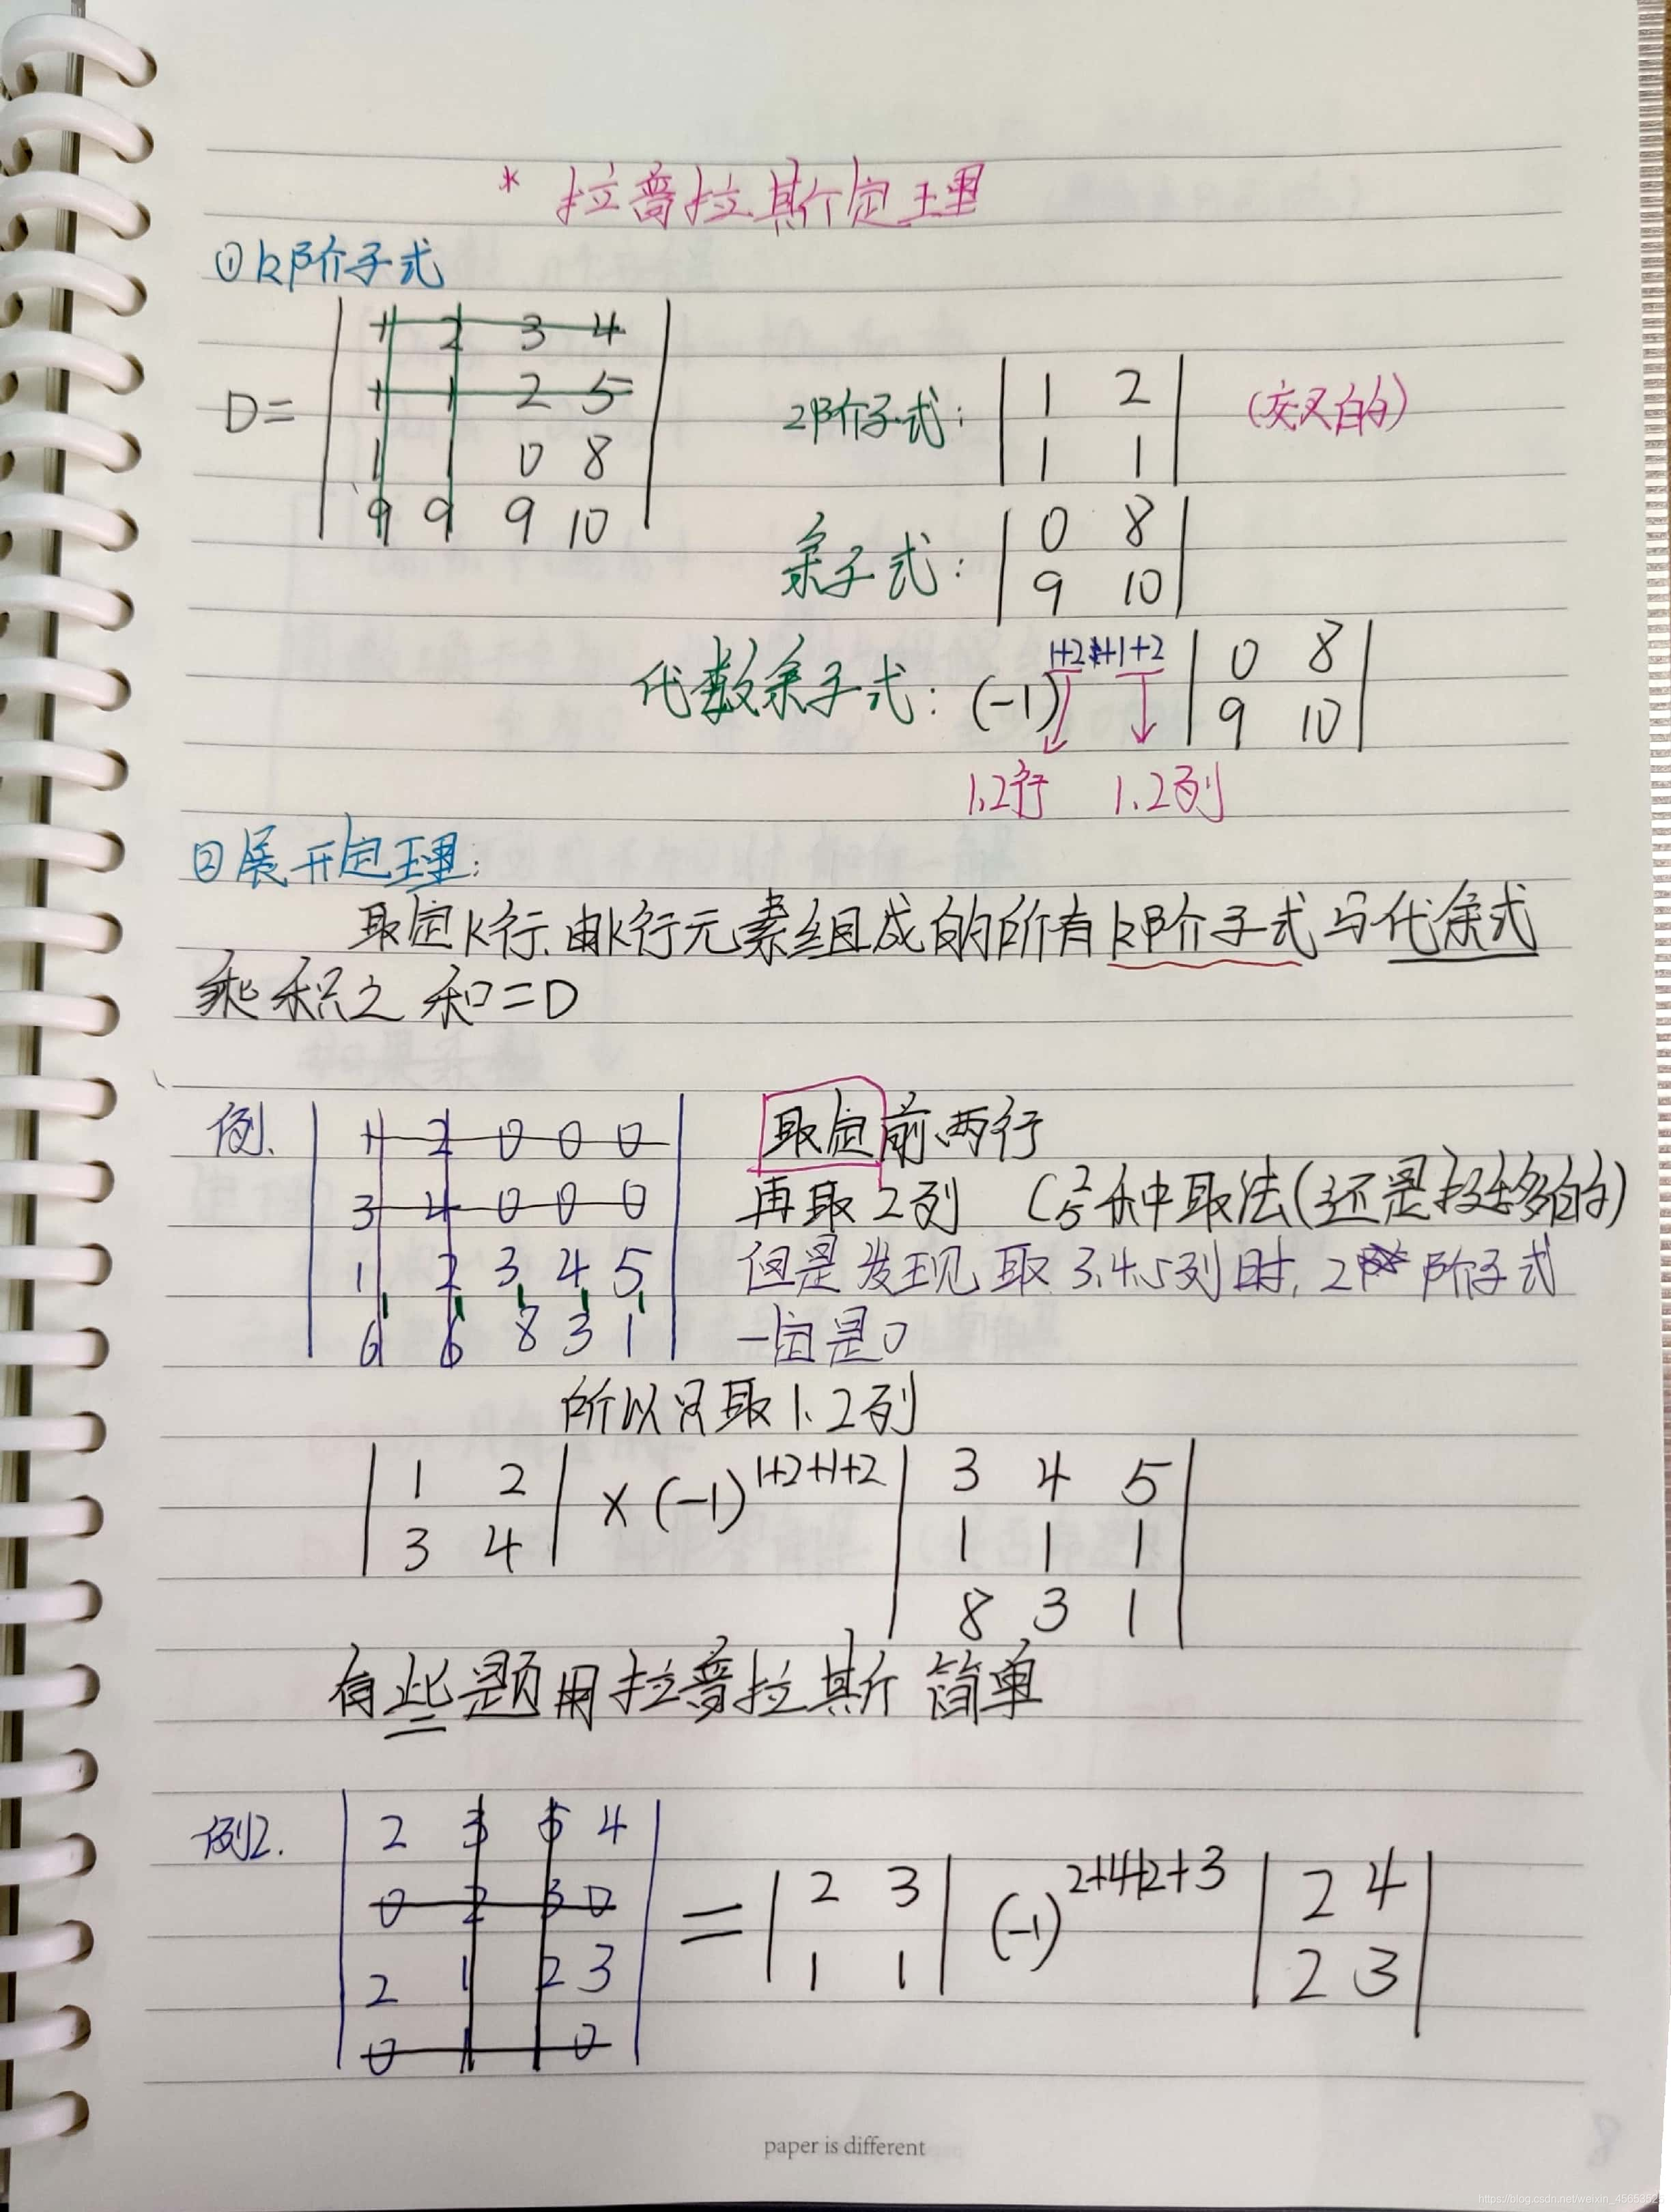 * 拉普拉斯定理
① k阶子式
D=
| 1 2 3 4 |
| 1 1 2 5 |
| 1 1 0 8 |
| 9 9 9 10 |
2阶子式:
| 1 2 |
| 1 1 |
(交叉的)
余子式:
| 0 8 |
| 9 10 |
代数余子式: (-1)^{1+2+1+2}
| 0 8 |
| 9 10 |
1.2行 1.2列
② 展开定理:
取定K行.由K行元素组成的所有k阶子式与代余式
乘积之和=D
例.
| 1 2 0 0 0 |
| 3 4 0 0 0 |
| 1 2 3 4 5 |
| 1 1 1 1 1 |
| 6 6 8 3 1 |
取定前两行
再取2列 C_5^2种取法(还是挺多的)
但是发现取3.4.5列时,2阶子式
一定是0
所以只取1.2列
| 1 2 |
| 3 4 |
×(-1)^{1+2+1+2}
| 3 4 5 |
| 1 1 1 |
| 8 3 1 |
有些题用拉普拉斯简单
例2.
| 2 3 5 4 |
| 0 2 3 0 |
| 2 1 2 3 |
| 0 1 1 0 |
=
| 2 3 |
| 1 1 |
(-1)^{2+4+2+3}
| 2 4 |
| 2 3 |
paper is different
8